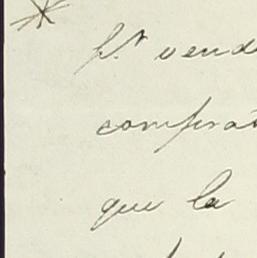 *
pr. vend
comprat
que la